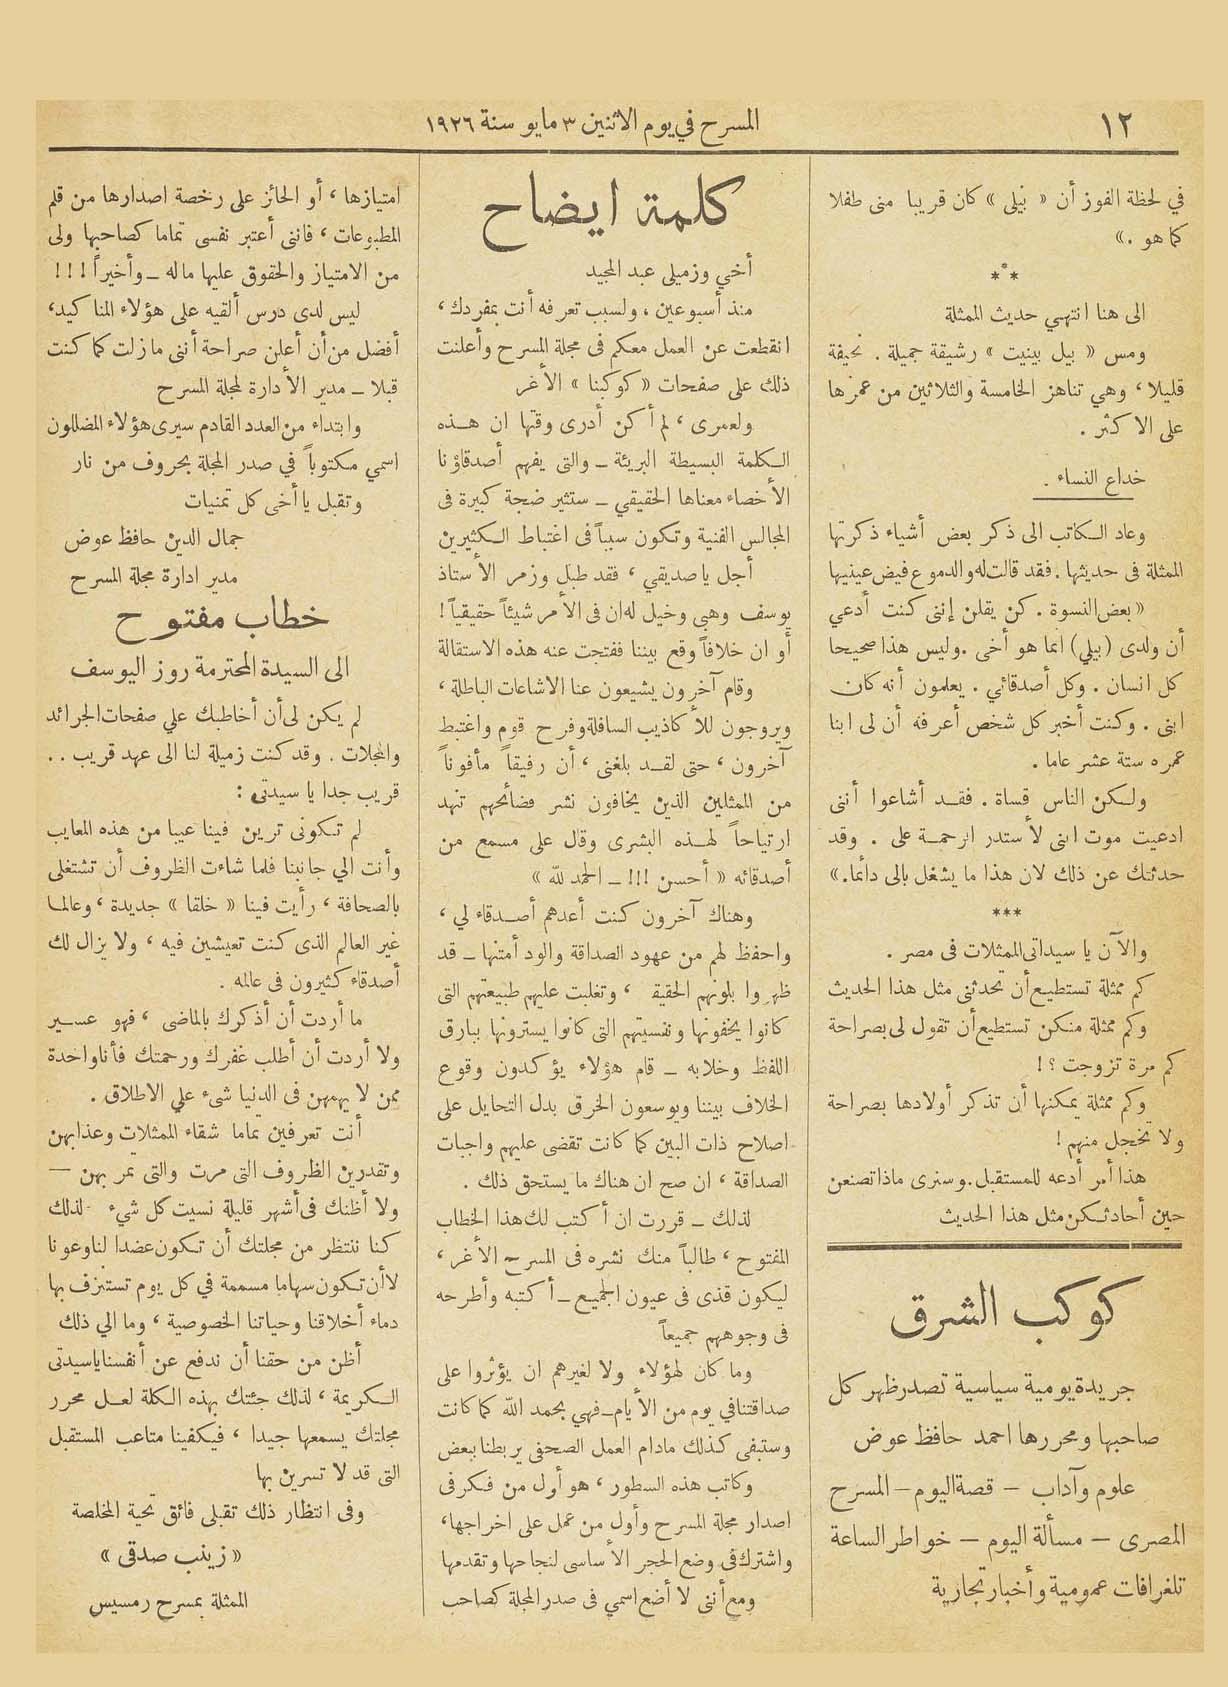 ١٢
المسرح في يوم الاثنين ٣ مايو سنة ١٩٢٦
في لحظة الفوز أن « بيلى » كان قريبا منى طفلا
كما هو .»
***
الى هنا انتهي حديث الممثلة
ومس « بيل بينيت » رشيقة جميلة . نحيفة
قليلا ، وهي تناهز الخامسة والثلاثين من عمرها
على الاكثر .
خداع النساء .
وعاد الكاتب الى ذكر بعض أشياء ذكرتها
الممثلة فى حديثها . فقد قالت له والدموع فيض عينيها
« بعض النسوة . كن يقلن إننى كنت أدعي
أن ولدى (بيلي) انما هو أخى . وليس هذا صحيحا
كل انسان . وكل أصدقائي . يعلمون أنه كان
ابنى . وكنت أخبر كل شخص أعرفه أن لى ابنا
عمره ستة عشر عاما .
ولكن الناس قساة . فقد أشاعوا أننى
ادعيت موت ابنى لأستدر الرحمة على . وقد
حدثتك عن ذلك لان هذا ما يشغل بالى دائما.»
***
والآن يا سيداتى الممثلات فى مصر .
كم ممثلة تستطيع أن تحدثنى مثل هذا الحديث
وكم ممثلة منكن تستطيع أن تقول لى بصراحة
كم مرة تزوجت ؟ !
وكم ممثلة يمكنها أن تذكر أولادها بصراحة
ولا تخجل منهم !
هذا أمر أدعه للمستقبل. وسنرى ماذا تصنعن
حين أحادثكن مثل هذا الحديث
كوكب الشرق
جريدة يومية سياسية تصدر ظهر كل
صاحبها ومحررها احمد حافظ عوض
علوم وآداب – قصة اليوم – المسرح
المصرى – مسألة اليوم – خواطر الساعة
تلغرافات عمومية وأخبار تجارية
كلمة ايضاح
أخي وزميلى عبد المجيد
منذ أسبوعين ، ولسبب تعرفه أنت بمفردك ،
انقطعت عن العمل معكم فى مجلة المسرح وأعلنت
ذلك على صفحات « كوكبنا » الأغر
ولعمرى ، لم أكن أدرى وقتها ان هذه
الكلمة البسيطة البريئة – والتى يفهم أصدقاؤنا
الأخصاء معناها الحقيقي – ستثير ضجة كبيرة فى
المجالس الفنية وتكون سبباً فى اغتباط الكثيرين
أجل يا صديقي ، فقد طبل وزمر الأستاذ
يوسف وهبى وخيل له ان فى الأمر شيئاً حقيقياً !
أو ان خلافاً وقع بيننا فنتجت عنه هذه الاستقالة
وقام آخرون يشيعون عنا الاشاعات الباطلة ،
ويروجون للأكاذيب السافلة وفرح قوم واغتبط
آخرون ، حتى لقد بلغنى ، أن رفيقاً مأفوناً
من الممثلين الذين يخافون نشر فضائحهم تنهد
ارتياحاً لهذه البشرى وقال على مسمع من
أصدقائه « أحسن !!! – الحمد لله »
وهناك آخرون كنت أعدهم أصدقاء لي ،
واحفظ لهم من عهود الصداقة والود أمتنها – قد
ظهروا بلونهم الحقيق ، وتغلبت عليهم طبيعتهم التى
كانوا يخفونها ونفسيتهم التى كانوا يسترونها ببارق
اللفظ وخلابه – قام هؤلاء يؤكدون وقوع
الخلاف بيننا ويوسعون الخرق بدل التحايل على
اصلاح ذات البين كما كانت تقضى عليهم واجبات
الصداقة ، ان صح ان هناك ما يستحق ذلك .
لذلك – قررت ان أكتب لك هذا الخطاب
المفتوح ، طالباً منك نشره فى المسرح الأغر ،
ليكون قذى فى عيون الجميع – أكتبه وأطرحه
فى وجوههم جميعاً
وما كان لهؤلاء ولا لغيرهم ان يؤثروا على
صداقتنا في يوم من الأيام – فهي بحمد الله كما كانت
وستبقى كذلك مادام العمل الصحفى يربطنا ببعض
وكاتب هذه السطور ، هو أول من فكر فى
اصدار مجلة المسرح وأول من عمل على اخراجها ،
واشترك فى وضع الحجر الأساسى لنجاحها وتقدمها
ومع أننى لا أضع اسمي فى صدر المجلة كصاحب
امتيازها ، أو الحائز على رخصة اصدارها من قلم
المطبوعات ، فاننى أعتبر نفسى تماما كصاحبها ولى
من الامتياز والحقوق عليها ماله – وأخيراً ! ! !
ليس لدى درس ألقيه على هؤلاء المناكيد ،
أفضل من أن أعلن صراحة أننى مازلت كما كنت
قبلا – مدير الأدارة لمجلة المسرح
وابتداء من العدد القادم سيرى هؤلاء المضللون
اسمي مكتوباً في صدر المجلة بحروف من نار
وتقبل يا أخى كل تمنيات
جمال الدين حافظ عوض
مدير ادارة مجلة المسرح
خطاب مفتوح
الى السيدة المحترمة روز اليوسف
لم يكن لى أن أخاطبك علي صفحات الجرائد
والمجلات . وقد كنت زميلة لنا الى عهد قريب . .
قريب جدا يا سيدتى :
لم تكونى ترين فينا عيبا من هذه المعايب
وأنت الي جانبنا فلما شاءت الظروف أن تشتغلى
بالصحافة ، رأيت فينا « خلقا » جديدة ، وعالما
غير العالم الذى كنت تعيشين فيه ، ولا يزال لك
أصدقاء كثيرون فى عالمه .
ما أردت أن أذكرك بالماضى ، فهو عسير
ولا أردت أن أطلب غفرك ورحمتك فأنا واحدة
ممن لا يهمهن فى الدنيا شىء علي الاطلاق .
أنت تعرفين تماما شقاء الممثلات وعذابهن
وتقدرين الظروف التى مرت والتى تمر بهن –
ولا أظنك فى أشهر قليلة نسيت كل شيء لذلك
كنا ننتظر من مجلتك أن تكون عضدا لنا وعونا
لا أن تكون سهاما مسممة في كل يوم تستنزف بها
دماء أخلاقنا وحياتنا الخصوصية ، وما الي ذلك
أظن من حقنا أن ندفع عن أنفسنا ياسيدتى
الكريمة ، لذلك جئتك بهذه الكلمة لعل محرر
مجلتك يسمعها جيدا ، فيكفينا متاعب المستقبل
التى قد لا تسرين بها
وفى انتظار ذلك تقبلى فائق تحية المخلصة
« زينب صدقى »
الممثلة بمسرح رمسيس